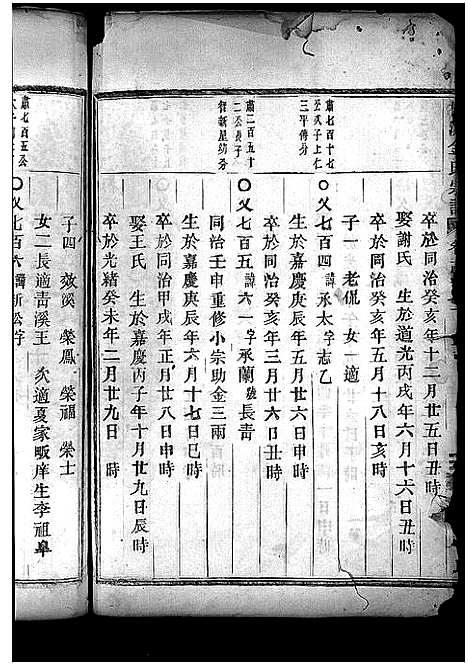 卒於同治癸亥年十二月廿五日丑時
娶謝氏 生於道光丙戌年六月十六日丑時
卒於同治癸亥年五月十八日亥時
子一 老侃 女一 適
肅七百十七
公次子上仁
三平傳分
〇乂七百四 諱承太 字志乙
生於嘉慶庚辰年五月廿六日申時
卒於同治癸亥年三月廿六日丑時
肅二百五十
二公長子
智新星紡分
〇乂七百五 諱六一 字承蘭 號長青
同治壬申重修小宗助金三兩
生於嘉慶庚辰年六月十七日巳時
卒於同治甲戌年正月廿八日申時
娶王氏 生於嘉慶丙子年十月廿九日辰時
卒於光緒癸未年二月廿九日 時
子四 效溪 榮鳳 榮福 榮士
女二 長適青溪王 次適夏家畈庠生李祖阜
肅七百五公
〇乂七百六 諱新公 字